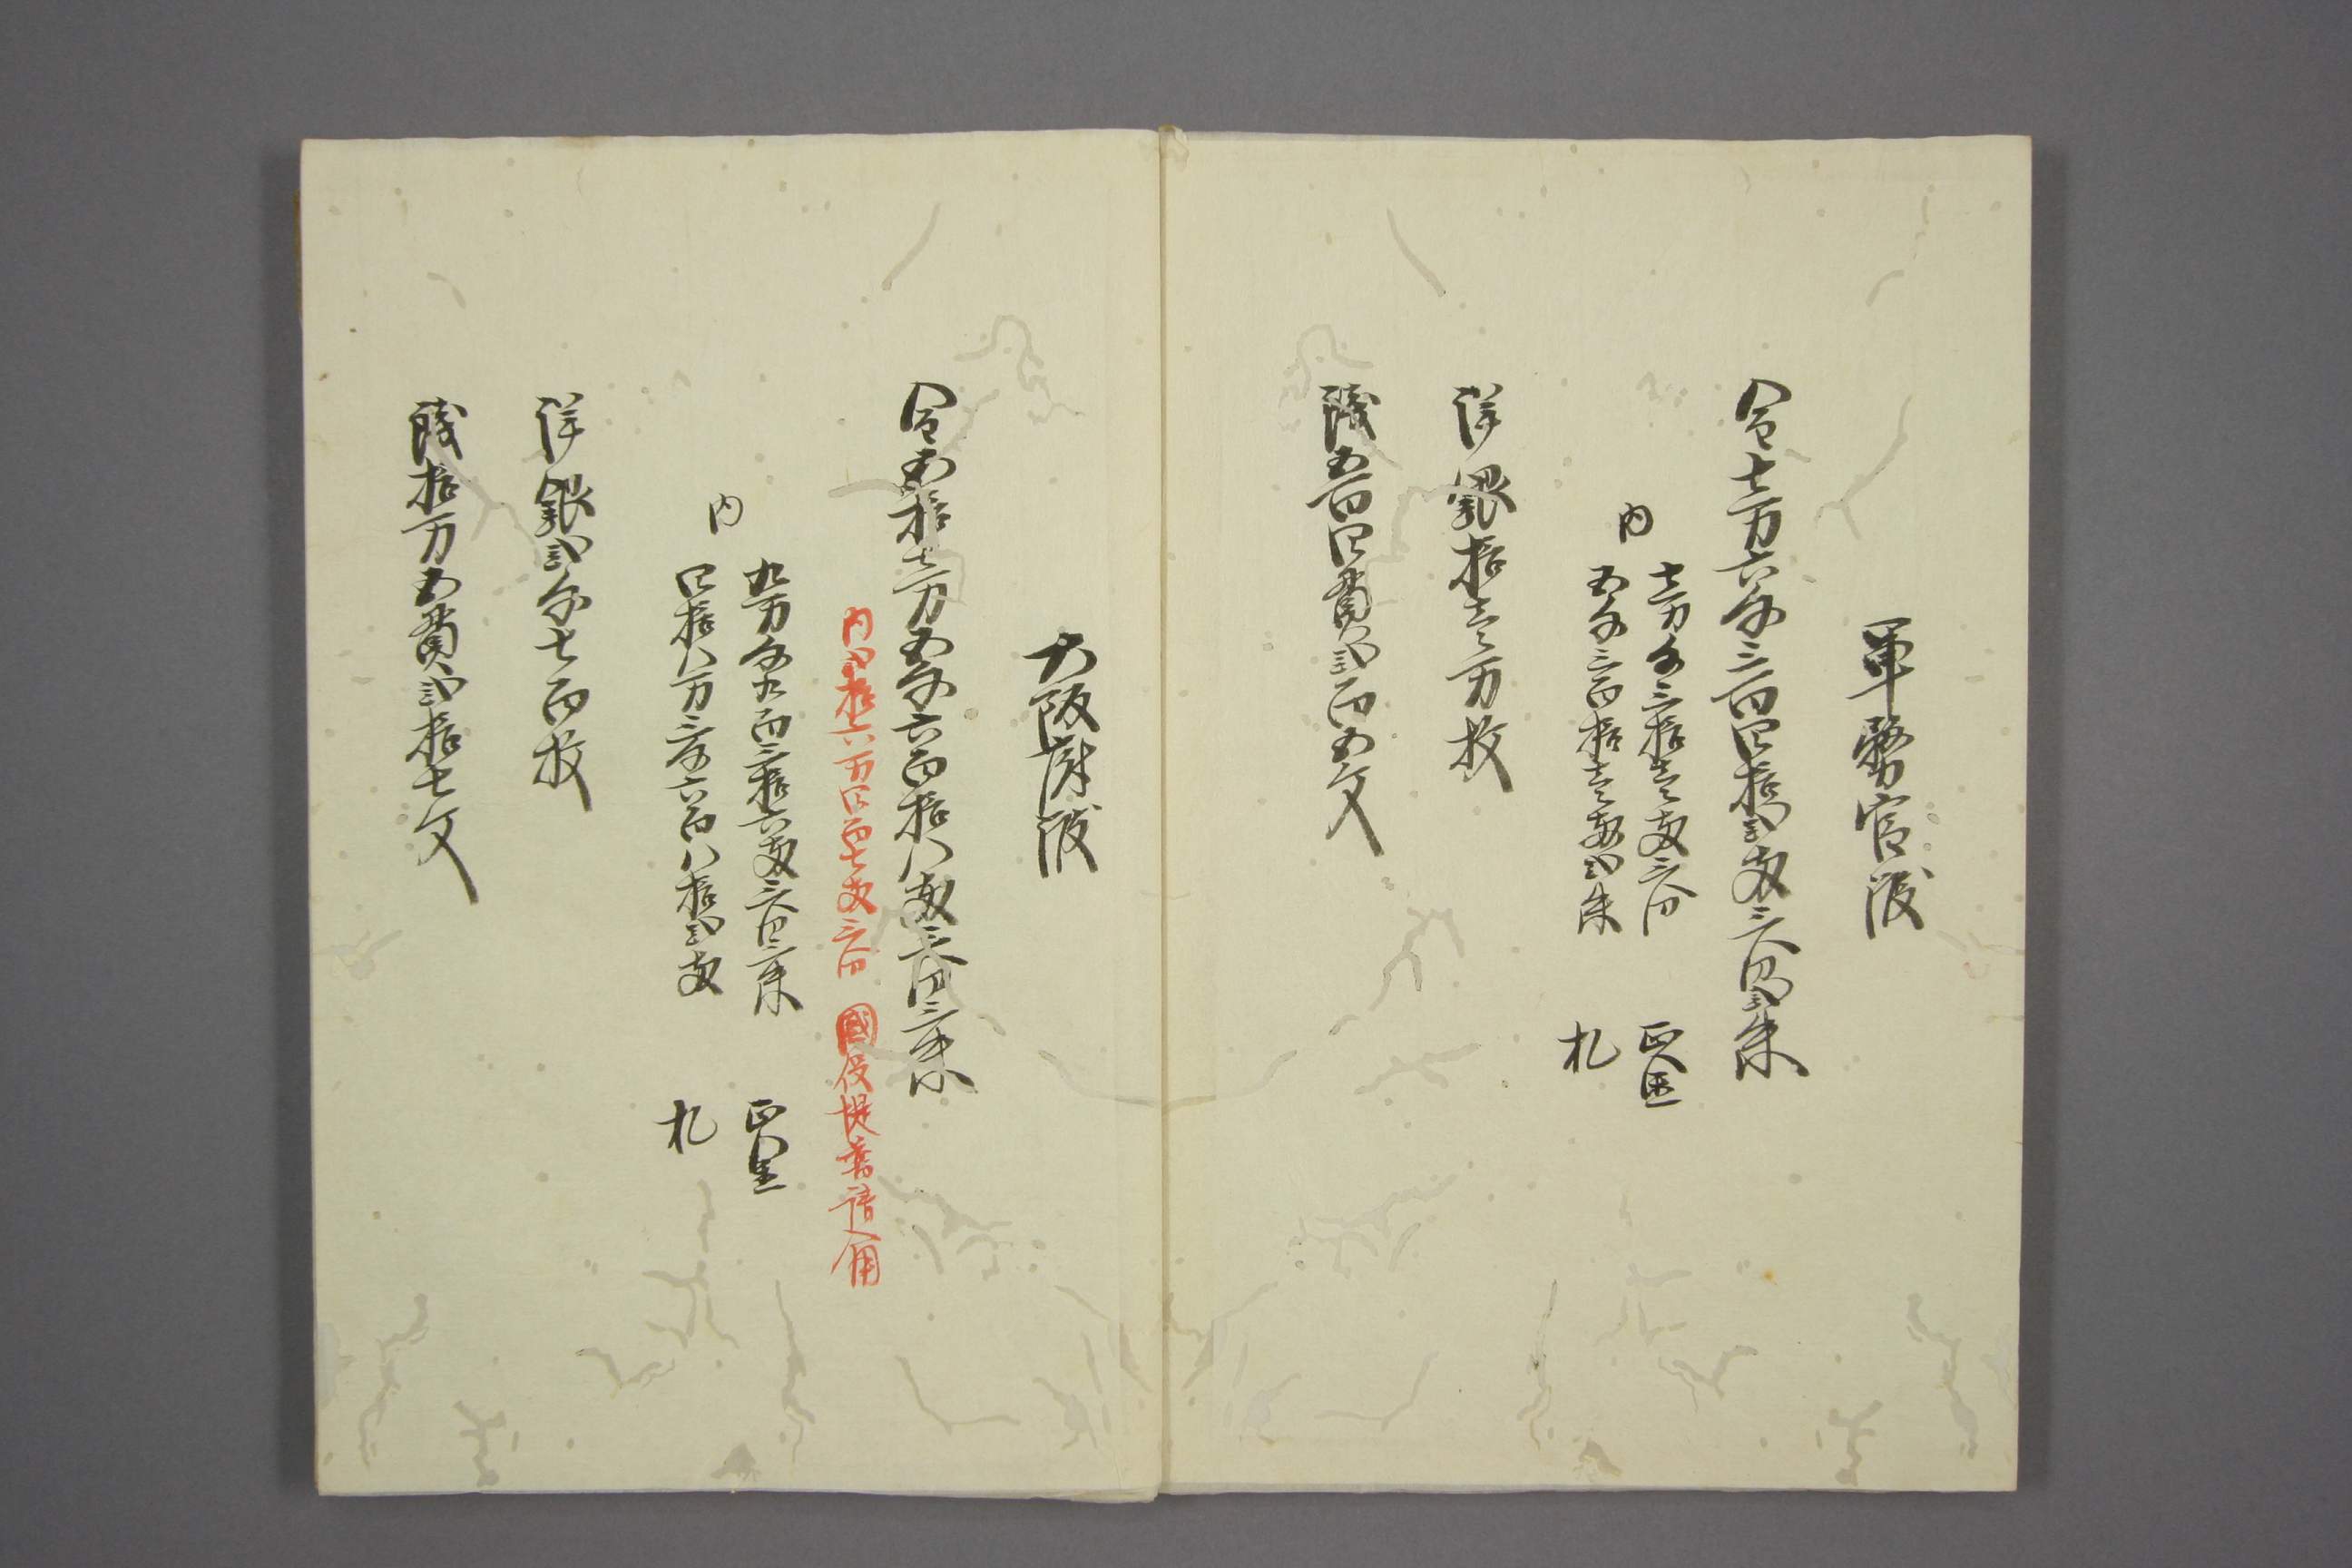 軍務官渡
金七万六千三百四拾弐両三分弐朱
内
七万千三拾壱両三分 正金
五千三百拾壱両弐朱 札
洋銀拾壱万枚
銭五百四貫弐百五文
大阪府渡
金五拾七万五千六百拾八両三分三朱
内弐拾六万四百七両三分 國役堤普請入用
内
九万千九百三拾六両三分三朱 正金
四拾八万三千六百八拾弐両 札
洋銀弐千七百枚
銭拾万五貫弐拾七文